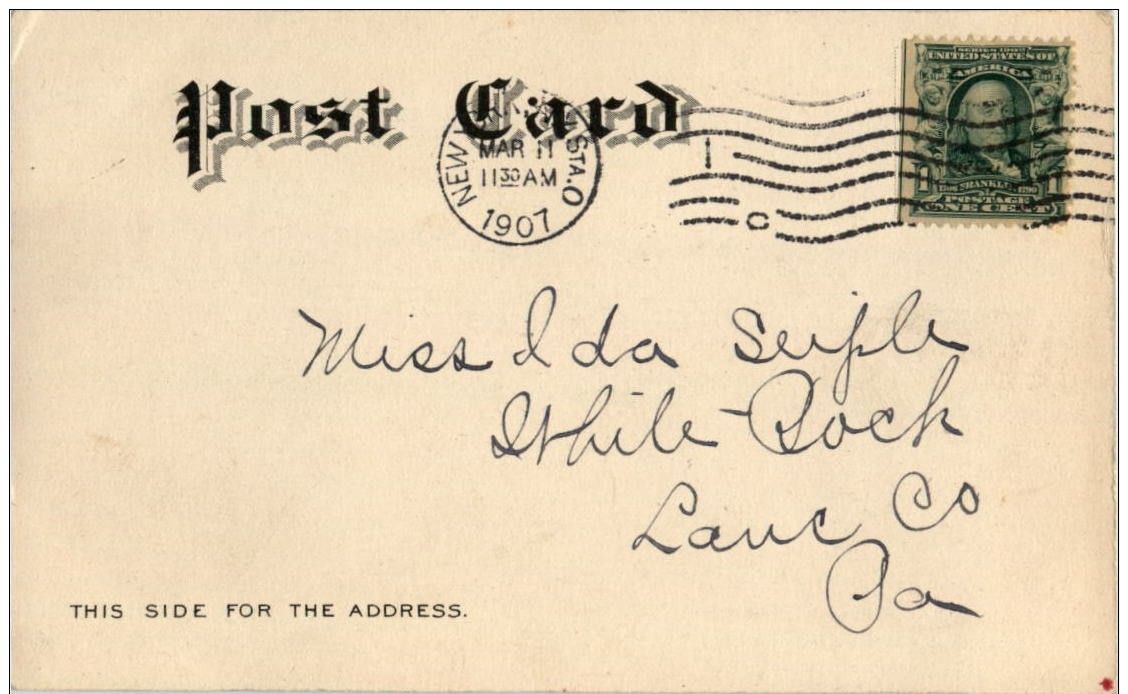 Post Card
NEW YORK, N.Y. STA. O
MAR 11
11 30 AM
1907
1
C
SERIES 1902
UNITED STATES OF
AMERICA
1 1
1706 FRANKLIN 1790
POSTAGE
ONE CENT
Miss Ida Seiple
White-Rock
Lanc Co
Pa
THIS SIDE FOR THE ADDRESS.